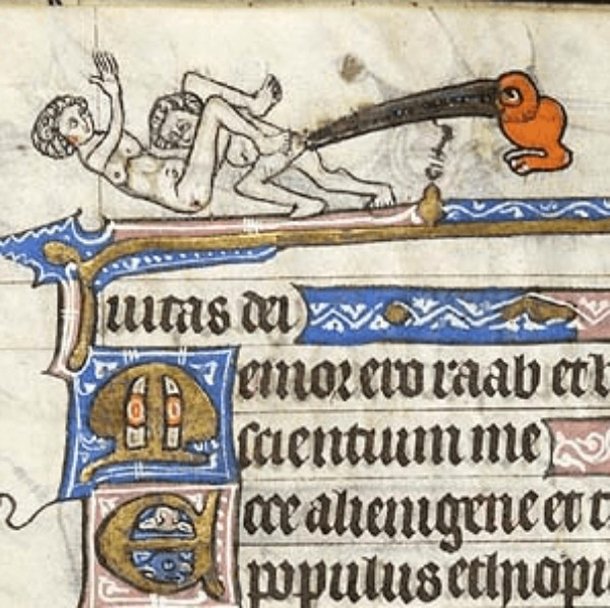 iuitas dei
Memor ero raab et b
scientium me
Ecce alienigene et t
populus ethiopi